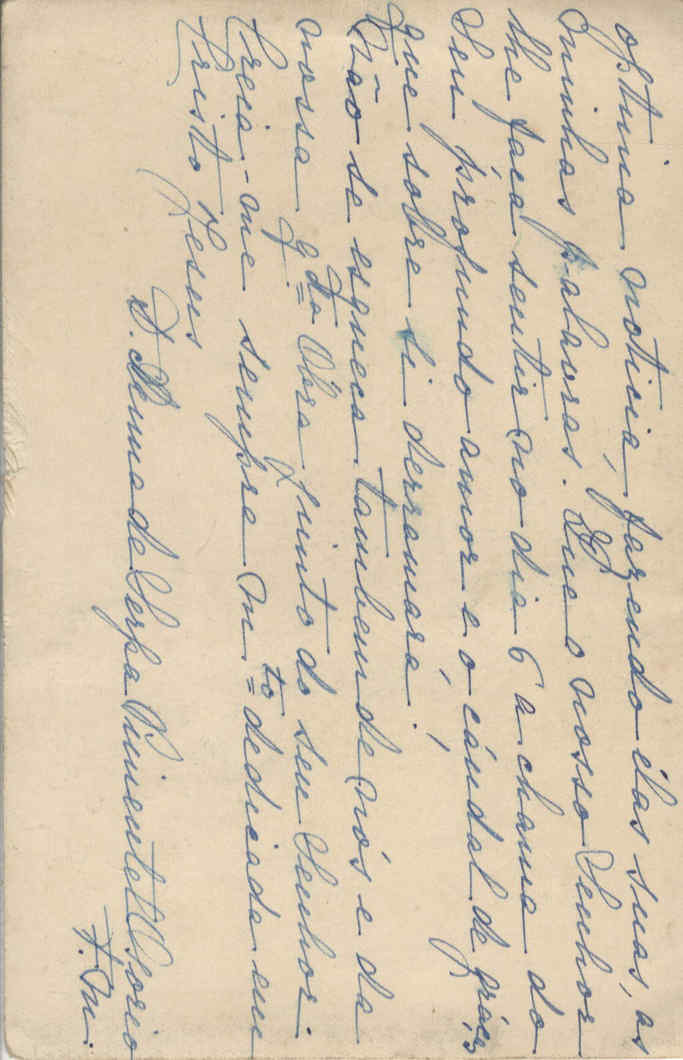 optima noticia, fazendo élas suas, as
minhas palavras. Que o nosso Senhor
lhe faça sentir no dia 6 a chama do
Seu profundo amor e o cáudal de graças
que sobre si derramará!
Não se esqueça tambem de nós e da
nossa q.da Obra junto do seu Senhor.
Creia-me sempre m.to dedicada em
Cristo Jesus
de Serpa Pimentel Osorio
F. M.